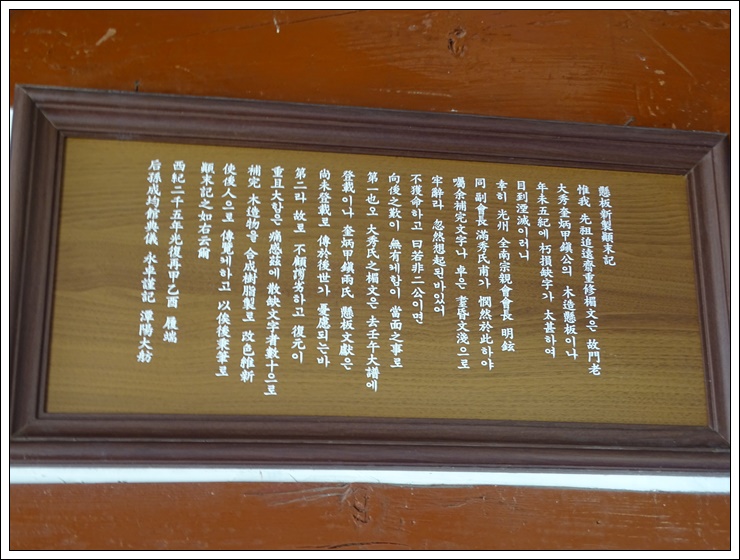 懸板新製顚末記
惟我 先祖追遠齋重修楣文은 故門老
大秀奎炳甲鎭公의 木造懸板이나
年未五紀에 朽損缺字가 太甚하여
目到湮滅이러니
幸히 光州 全南宗親會會長 明鉉
同 副會長 滿秀氏甫가 憫然於此하야
囑余補完文字나 卓은 耄昏文淺으로
牢辭라 忽然想起된바있어
不獲命하고 曰若非二公이면
向後之歎이 無有케함이 當面之事로
第一也오 大秀氏之楣文은 去壬午大譜에
登載이나 奎炳甲鎭兩氏 懸板文獻은
尚未登載로 傳於後世가 憂慮되는바
第二라 故로 不顧謭劣하고 復元이
重且大함은 痛感玆에 散缺文字者數十으로
補完 木造物을 合成樹脂製로 改色維新
使後人으로 傳覽케하고 以俟後秉筆로
顚末記之如右云爾
西紀二千五年光復再甲乙酉 履端
后孫成均館典儀 永卓謹記 潭陽大舫